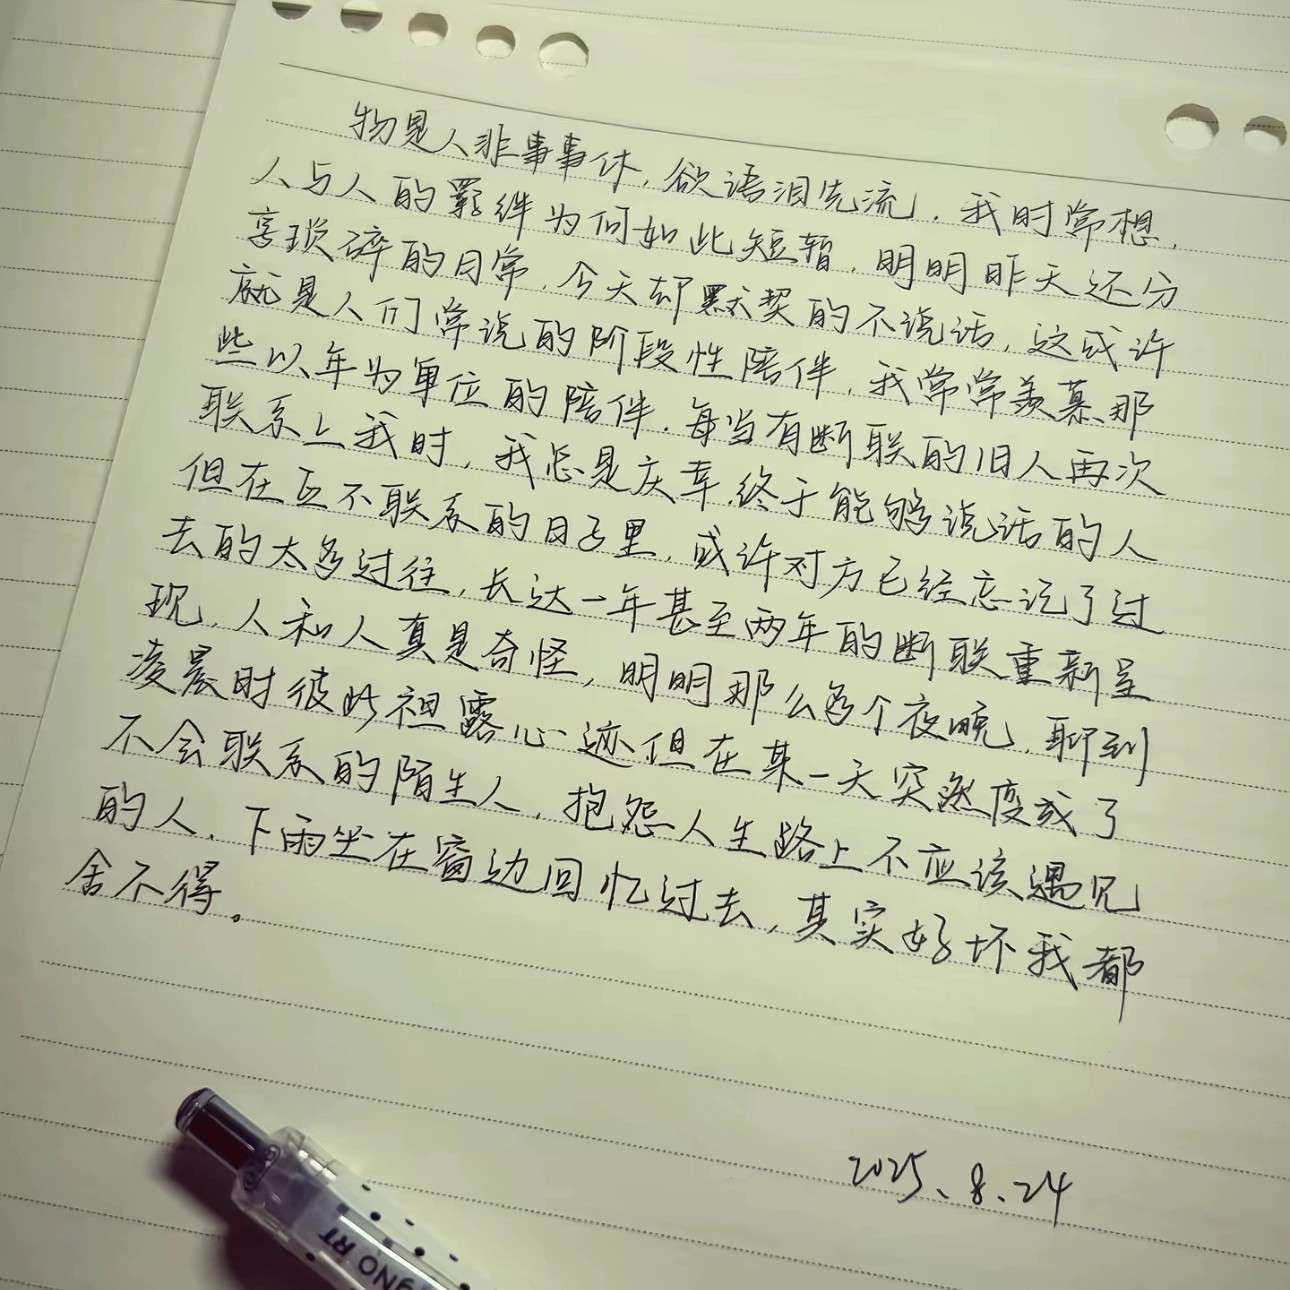 物是人非事事休,欲语泪先流.我时常想,
人与人的羁绊为何如此短暂.明明昨天还分
享琐碎的日常,今天却默契的不说话,这或许
就是人们常说的阶段性陪伴,我常常羡慕那
些以年为单位的陪伴.每当有断联的旧人再次
联系上我时,我总是庆幸.终于能够说话的人
但在互不联系的日子里,或许对方已经忘记了过
去的太多过往,长达一年甚至两年的断联重新呈
现,人和人真是奇怪,明明那么多个夜晚,聊到
凌晨时彼此袒露心迹但在某一天突然变成了
不会联系的陌生人,抱怨人生路上不应该遇见
的人.下雨坐在窗边回忆过去,其实好坏我都
舍不得。
2025、8、24
gNO RT